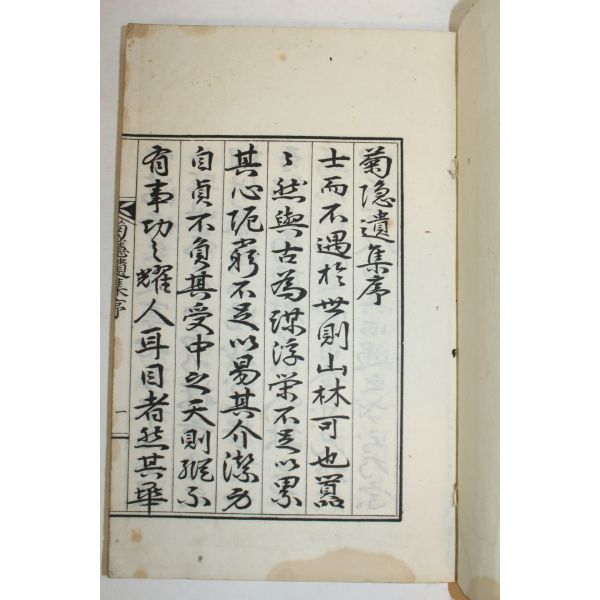 菊隐遺集序
士而不遇於世則山林可也囂
〻然與古為謀浮栄不足以累
其心阨窮不足以易其介潔身
自貞不負其受中之天則縱不
有事功之耀人耳目者然其畢
菊隱遺集序
一